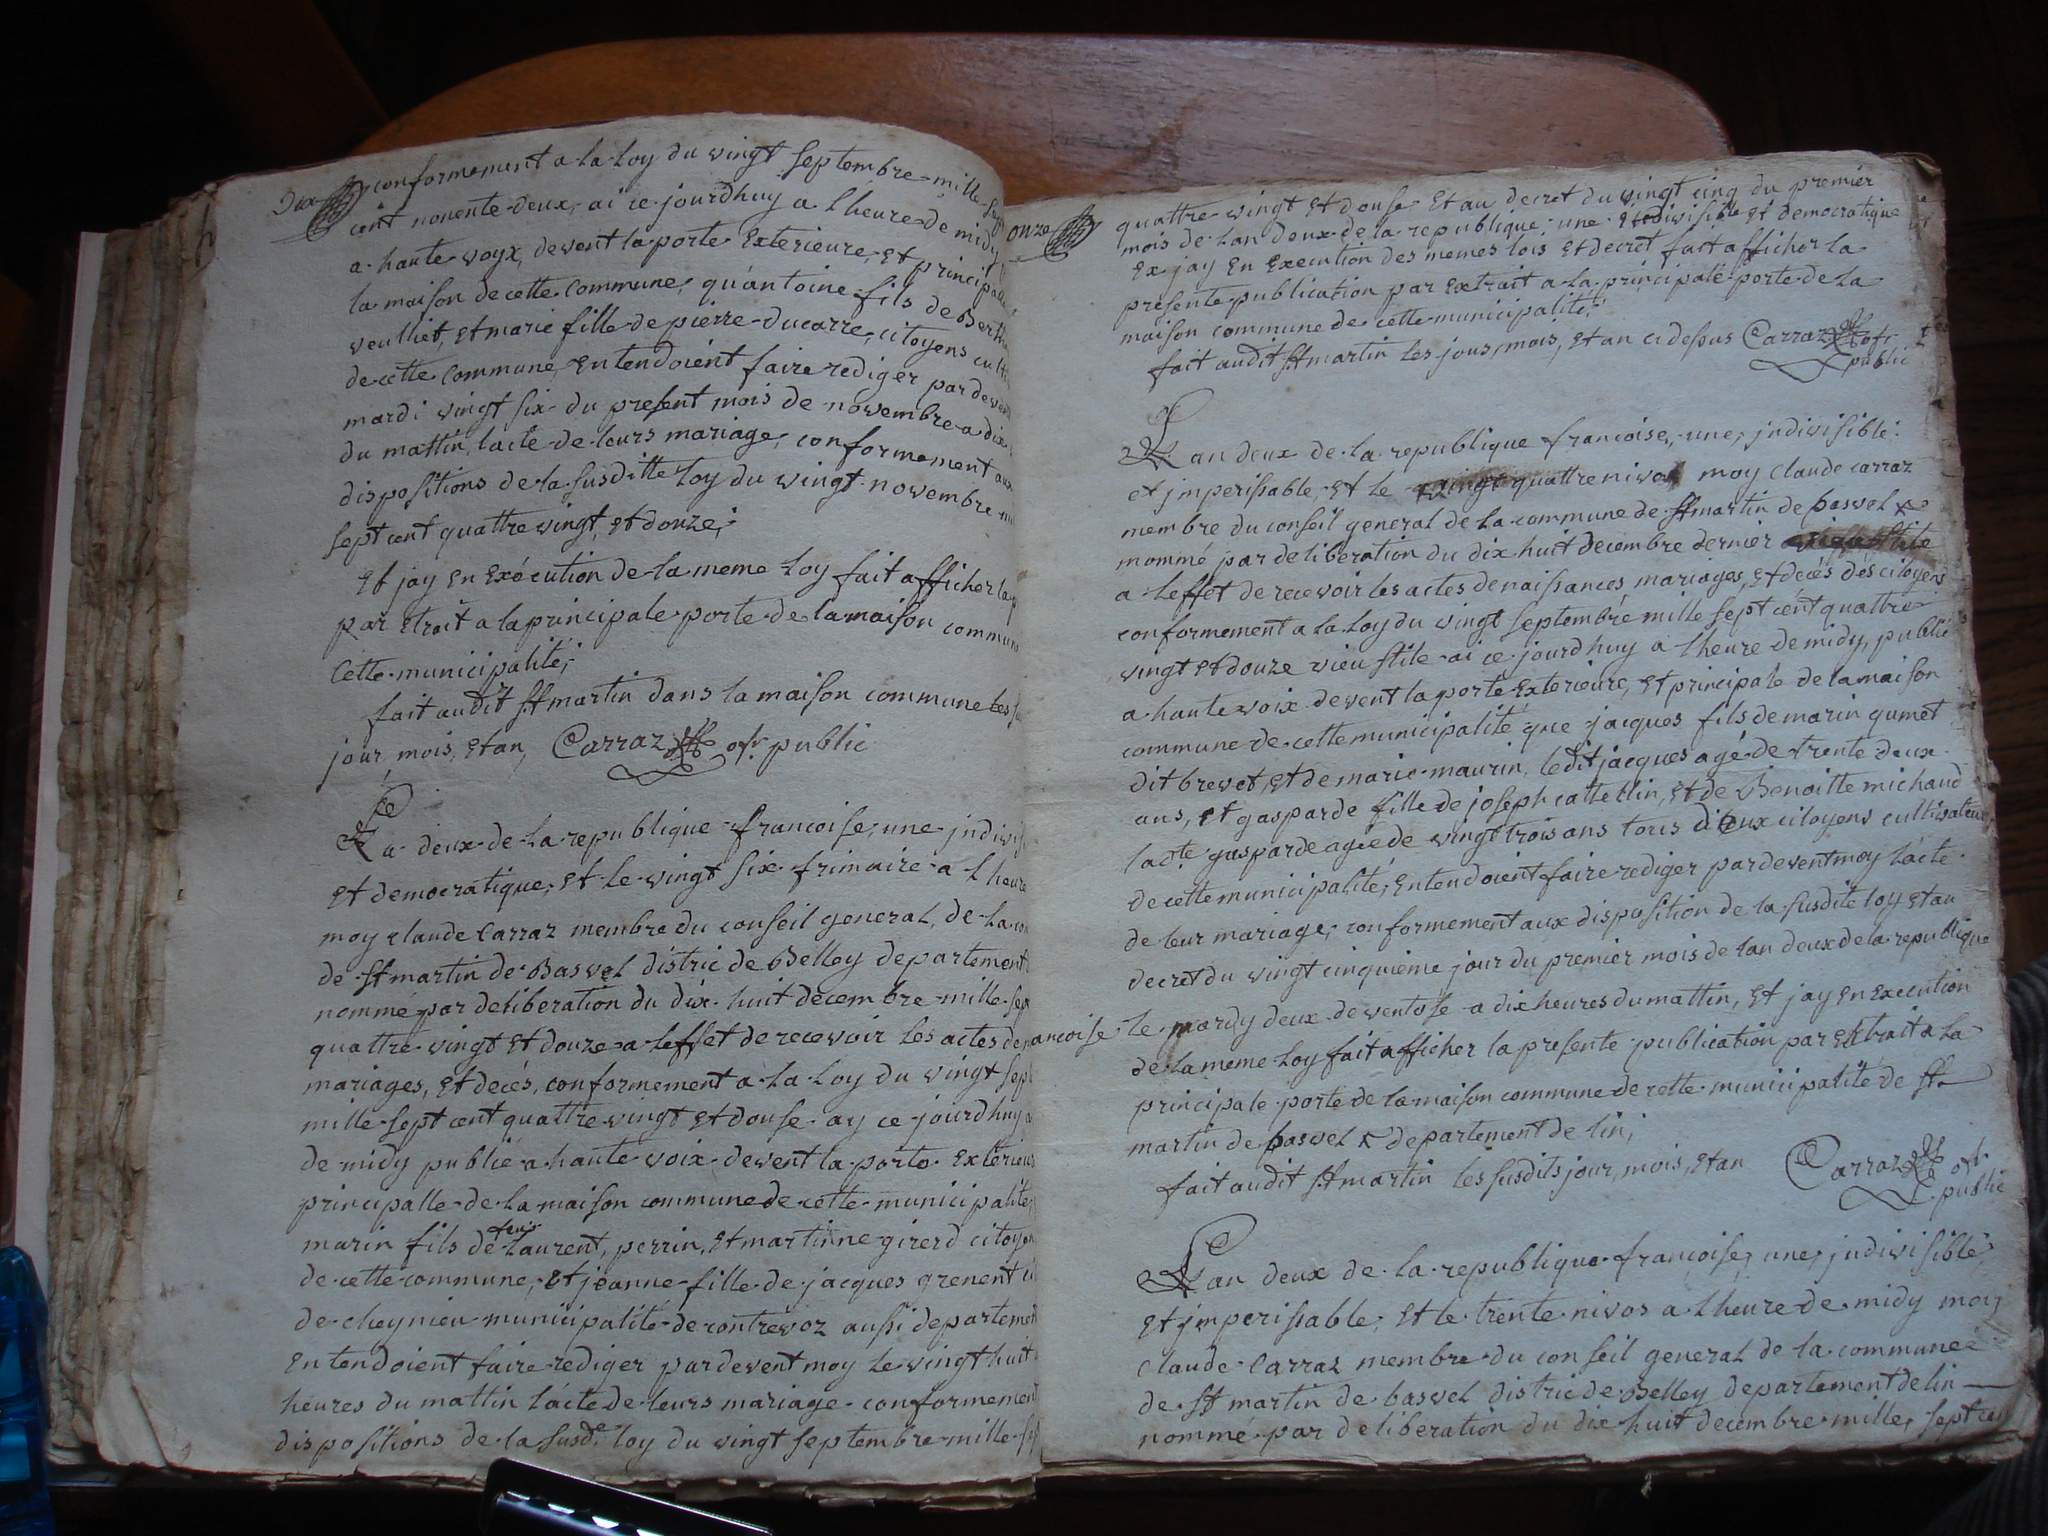 Dix
conformement a la Loy du vingt septembre mille sept
cent nonente deux, ai ce jourdhuy a lheure de midy
a haute voyx, devent la porte Exterieure, et principalle
la maison de cette commune, quántoine fils de Berth
veulliet, et marie fille de pierre Ducarre, citoyens culti
de cette commune, Entendoient faire rediger pardevent
mardi vingt six du present mois de novembre a dix
du mattin, lacte de leurs mariage, conformement aux
dispositions de la susditte Loy du vingt novembre mil
sept cent quattre vingt, et douze;
et jay En Exécution de la meme Loy fait afficher la p
par Etrait a la principale porte de la maison commune
Cette municipalité;
fait audit St martin dans la maison commune les su
jour, mois, et an, Carraz ofr public
La deux de la republique francoise, une, jndivis
et democratique, et le vingt six frimaire a lheure
moy claude Carraz membre du conseil general, de la co
de St martin de Bavel distric de Belley departement
nommé par deliberation du dix huit decembre mille sept
quattre vingt et douze a leffet de recevoir les actes de n
mariages, et decés, conformement a la Loy du vingt sept
mille sept cent quattre vingt et douse ay ce jourdhuy a
de midy publié a haute voix devent la porte Exterieure
principalle de la maison commune de cette municipalité,
marin fils de feus Laurent, perrin, et martinne girerd citoyen
de cette commune, et jeanne fille de jacques grenent ci
de cheynieu municipalité de contrevoz aussi departement
Entendoient faire rediger pardevent moy le vingt huit
heures du mattin lácte de leurs mariage conformement
dispositions de la susde loy du vingt septembre mille sept
onze
quattre vingt et douse et au decret du vingt cinq du premier
mois de lan deux de la republique, une jndivisible et democratique
Ex jay En Execution des memes lois et decret fait afficher la
presente publication par Extrait a la principale porte de la
maison commune de cette municipalité;
fait audit St martin les jous, mois, et an ci desus Carraz ofr
public
Lan deux de la republique francoise, une, jndivisible
et jmperissable, et le vingt quattre nivos moy Claude carraz
membre du conseil general de la commune de St martin de bavel
nommé par deliberation du dix huit decembre dernier vieu stile
a leffet de recevoir les actes de naissances mariages, et decés des citoyens
conformement a la Loy du vingt septembre mille sept cént quattre
vingt et douze vieu stile ai ce jourdhuy a lheure de midy, publié
a haute voix devent la porte Exterieure, et principale de la maison
commune de cette municipalité que jacques fils de marin gumet
dit brevet, et de marie maurin, ledit jacques agé de trente deux
ans, et gasparde fille de joseph cattellin, et de Benoitte michaud
lacte gasparde agée de vingt trois ans tous deux citoyens cultivateurs
de cette municipalité, Entendoient faire rediger pardevent moy lácte
de leur mariage, conformement aux disposition de la susdite loy et au
decret du vingt cinquieme jour du premier mois de lan deux de la republique
ancoise le mardy deux de ventose a dix heures du mattin, Et jay en Execution
de la meme Loy fait afficher la presente publication par Extrait a la
principale porte de la maison commune de cette municipalité de St
martin de bavel departement de lin;
fait audit St martin les susdits jour, mois, et an Carraz ofr
public
Lan deux de la republique francoise, une, jndivisible
et jmperissable, et le trente nivos a lheure de midy moy
Claude Carraz membre du conseil general de la commune
de St martin de bavel distric de Belley departement de lin
nommé par deliberation du dix huit decembre mille, sept cen